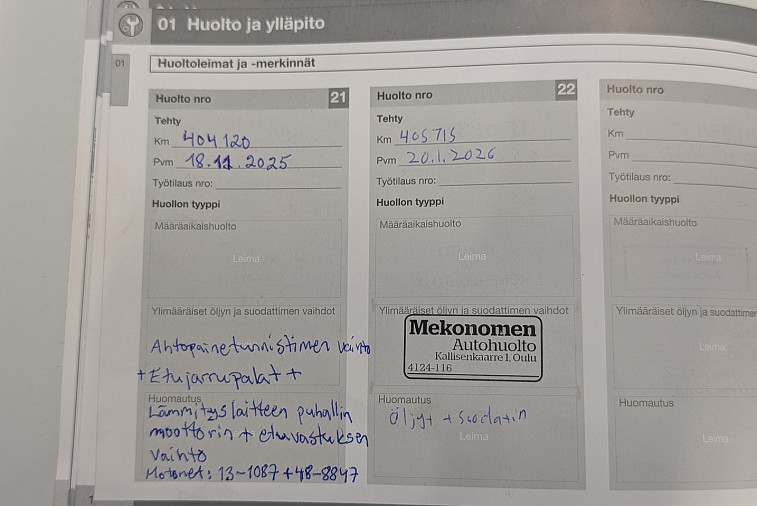 01 Huolto ja ylläpito
01
Huoltoleimat ja -merkinnät
Huolto nro 21
Tehty
Km 404120
Pvm 18.11.2025
Työtilaus nro:
Huollon tyyppi
Määräaikaishuolto
Leima
Ylimääräiset öljyn ja suodattimen vaihdot
Ahtopainetunnistimen vaihto
+ Etujarrupalat +
Huomautus
Lämmityslaitteen puhallin
moottorin + etuvastuksen
vaihto
Motonet: 13-1087 + 48-8847
Huolto nro 22
Tehty
Km 405715
Pvm 20.1.2026
Työtilaus nro:
Huollon tyyppi
Määräaikaishuolto
Leima
Ylimääräiset öljyn ja suodattimen vaihdot
Mekonomen
Autohuolto
Kallisenkaarre 1, Oulu
4124-116
Huomautus
Öljyt + suodatin
Leima
Huolto nro
Tehty
Km
Pvm
Työtilaus nro:
Huollon tyyppi
Määräaikaishuolto
Leima
Ylimääräiset öljyn ja suodattimen
Leima
Huomautus
Leima
1